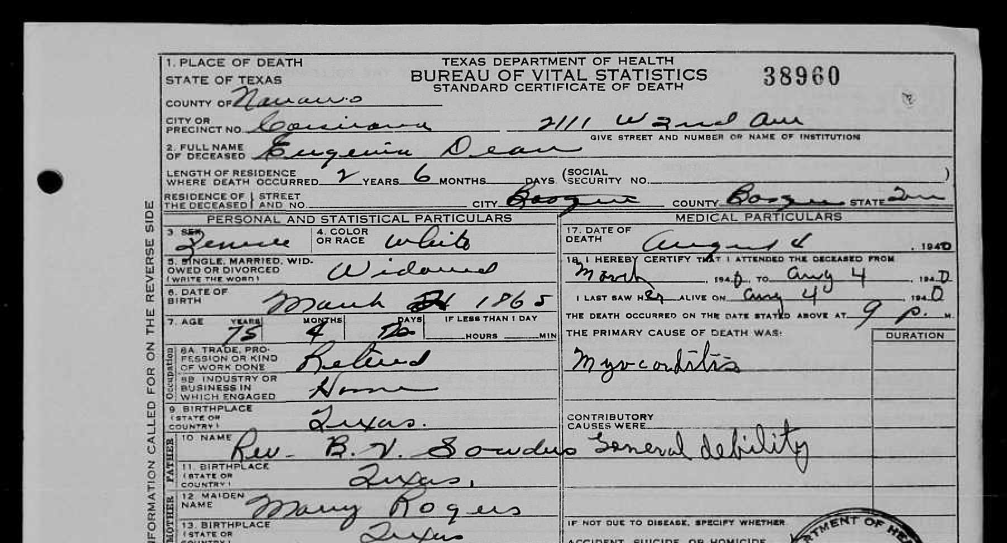 1. PLACE OF DEATH
STATE OF TEXAS
TEXAS DEPARTMENT OF HEALTH
BUREAU OF VITAL STATISTICS
STANDARD CERTIFICATE OF DEATH
38960
COUNTY OF Navarro
CITY OR PRECINCT NO. Corsicana 2111 W 2nd Ave
GIVE STREET AND NUMBER OR NAME OF INSTITUTION
2. FULL NAME OF DECEASED Eugenia Dean
LENGTH OF RESIDENCE WHERE DEATH OCCURRED 2 YEARS 6 MONTHS DAYS (SOCIAL SECURITY NO. )
RESIDENCE OF THE DECEASED STREET AND NO. CITY COUNTY STATE
PERSONAL AND STATISTICAL PARTICULARS
3. SEX Female 4. COLOR OR RACE White
5. SINGLE, MARRIED, WIDOWED OR DIVORCED (WRITE THE WORD) Widowed
6. DATE OF BIRTH March 1865
7. AGE YEARS 75 MONTHS 4 DAYS IF LESS THAN 1 DAY HOURS MIN
Occupation
8A. TRADE, PROFESSION OR KIND OF WORK DONE Retired
8B. INDUSTRY OR BUSINESS IN WHICH ENGAGED Home
9. BIRTHPLACE (STATE OR COUNTRY) Texas.
FATHER
10 NAME Rev. B. V.
11. BIRTHPLACE (STATE OR COUNTRY) Texas.
MOTHER
12. MAIDEN NAME Mary Rogers
13. BIRTHPLACE (STATE OR COUNTRY) Texas
MEDICAL PARTICULARS
17. DATE OF DEATH August 4 , 1940
18. I HEREBY CERTIFY THAT I ATTENDED THE DECEASED FROM
March 1940, TO Aug 4 1940
I LAST SAW HER ALIVE ON Aug 4 1940
THE DEATH OCCURRED ON THE DATE STATED ABOVE AT 9 p. M.
THE PRIMARY CAUSE OF DEATH WAS: DURATION
Myocarditis
CONTRIBUTORY CAUSES WERE:
General debility
IF NOT DUE TO DISEASE, SPECIFY WHETHER
ACCIDENT, SUICIDE, OR HOMICIDE
RTMENT OF HEA
NFORMATION CALLED FOR ON THE REVERSE SIDE